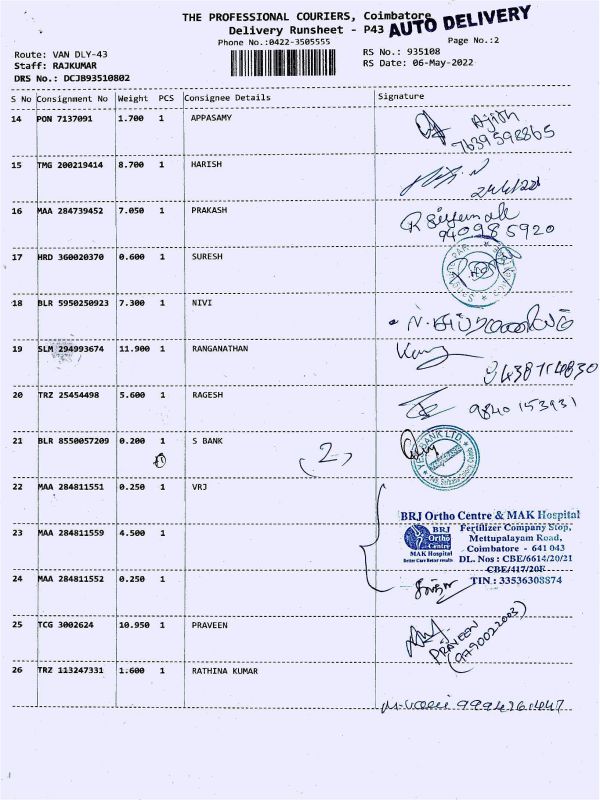 THE PROFESSIONAL COURIERS, Coimbatore
Delivery Runsheet - P43
AUTO DELIVERY
Phone No.:0422-3505555
Page No.:2
Route: VAN DLY-43
RS No.: 935108
Staff: RAJKUMAR
RS Date: 06-May-2022
DRS No.: DCJB93510802
S No Consignment No Weight PCS Consignee Details Signature
14 PON 7137091 1.700 1 APPASAMY
Ajith
7639598865
15 TMG 200219414 8.700 1 HARISH
16 MAA 284739452 7.050 1 PRAKASH
940985920
17 HRD 360020370 0.600 1 SURESH
18 BLR 5950250923 7.300 1 NIVI
19 SLM 294993674 11.900 1 RANGANATHAN
20 TRZ 25454498 5.600 1 RAGESH
9840153931
21 BLR 8550057209 0.200 1 S BANK
(2)
YES BANK LTD.
22 MAA 284811551 0.250 1 VRJ
23 MAA 284811559 4.500 1
24 MAA 284811552 0.250 1
BRJ Ortho Centre & MAK Hospital
BRJ Ortho Centre
MAK Hospital
Better Care Better results
Fertilizer Company Stop,
Mettupalayam Road,
Coimbatore - 641 043
DL. Nos : CBE/6614/20/21
CBE/417/20F
TIN : 33536308874
25 TCG 3002624 10.950 1 PRAVEEN
PRAVEEN
(9790022003)
26 TRZ 113247331 1.600 1 RATHINA KUMAR